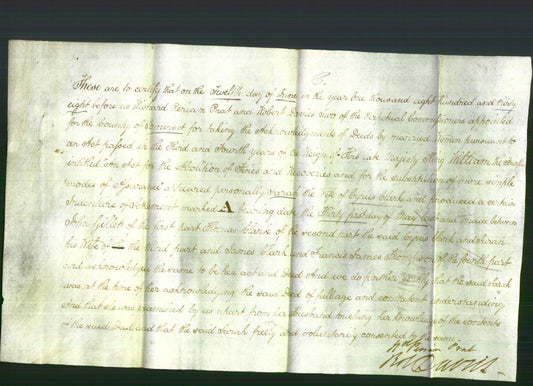 These are to certify that on the Twelfth day of June in the year One thousand eight hundred and thirty
eight before us Richard Perian Prat and Robert Davis two of the Perpetual Commissioners appointed
for the County of Somerset for taking the Acknowledgments of Deeds by married Women pursuant to
an Act passed in the Third and Fourth years of the Reign of His late Majesty King William the fourth
intitled "An Act for the Abolition of Fines and Recoveries and for the substitution of more simple
modes of Assurance" appeared personally Sarah the Wife of Cyrus Clark and produced a certain
Indenture of Settlement marked A bearing date the Thirty first day of May last and made between
John Gillet of the first part Thomas Clark of the second part the said Cyrus Clark and Sarah
his Wife of the third part and James Clark and Francis James Thompson of the fourth part
and acknowledged the same to be her act and Deed And we do further certify that the said Sarah
was at the time of her acknowledging the said Deed of full age and competent understanding
And that she was examined by us apart from her Husband touching her knowledge of the contents
of the said Deed and that she the said Sarah freely and voluntarily consented to the same
Prat
Davis